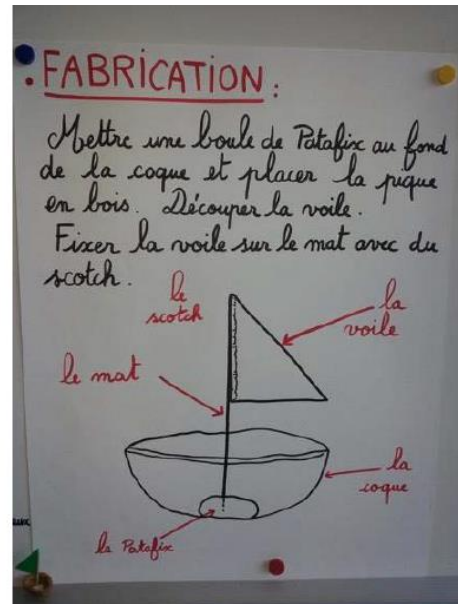 . FABRICATION :
Mettre une boule de Patafix au fond
de la coque et placer la pique
en bois. Découper la voile.
Fixer la voile sur le mat avec du
scotch.
le
scotch
la
voile
le mat
la
coque
le Patafix